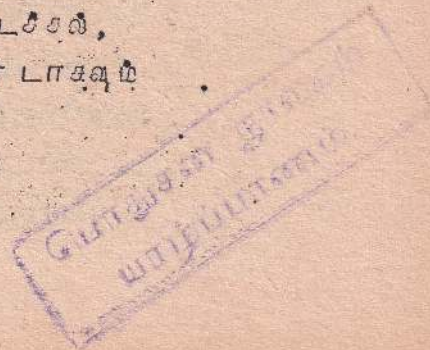 டச்சல்,
டாகவும்
பொதுசன நூலகம்
யாழ்ப்பாணம்.